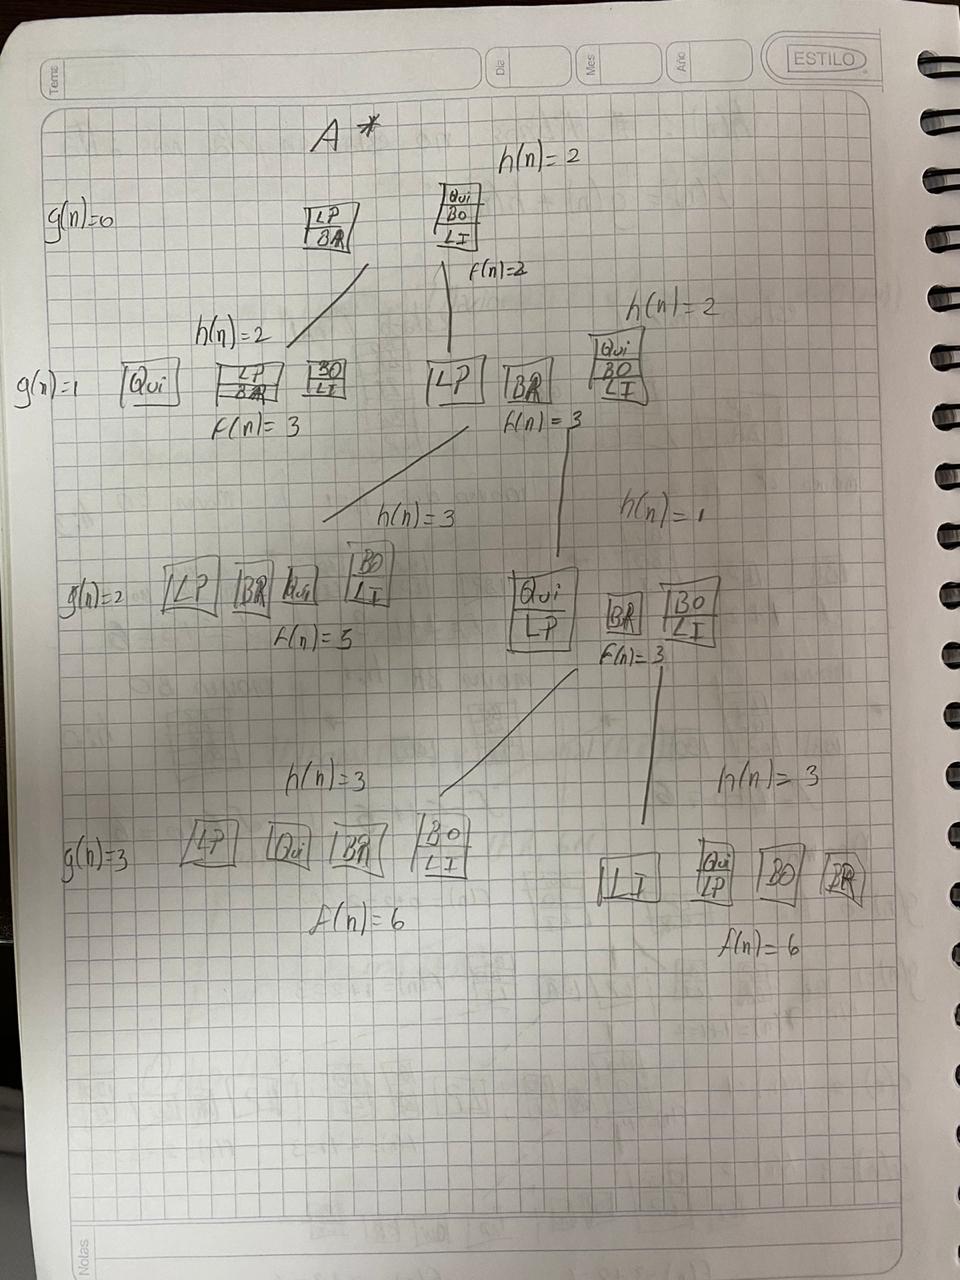 Tema
Día
Mes
Año
ESTILO
A*
h(n)=2
g(n)=0
LP
BR
Qui
BO
LI
f(n)=2
h(n)=2
h(n)=2
g(n)=1
Qui
LP
BR
BO
LI
LP
BR
Qui
BO
LI
f(n)=3
f(n)=3
h(n)=3
h(n)=1
g(n)=2
LP
BR
Qui
BO
LI
Qui
LP
BR
BO
LI
f(n)=5
f(n)=3
h(n)=3
h(n)=3
g(n)=3
LP
Qui
BR
BO
LI
LI
Qui
LP
BO
BR
f(n)=6
f(n)=6
Notas